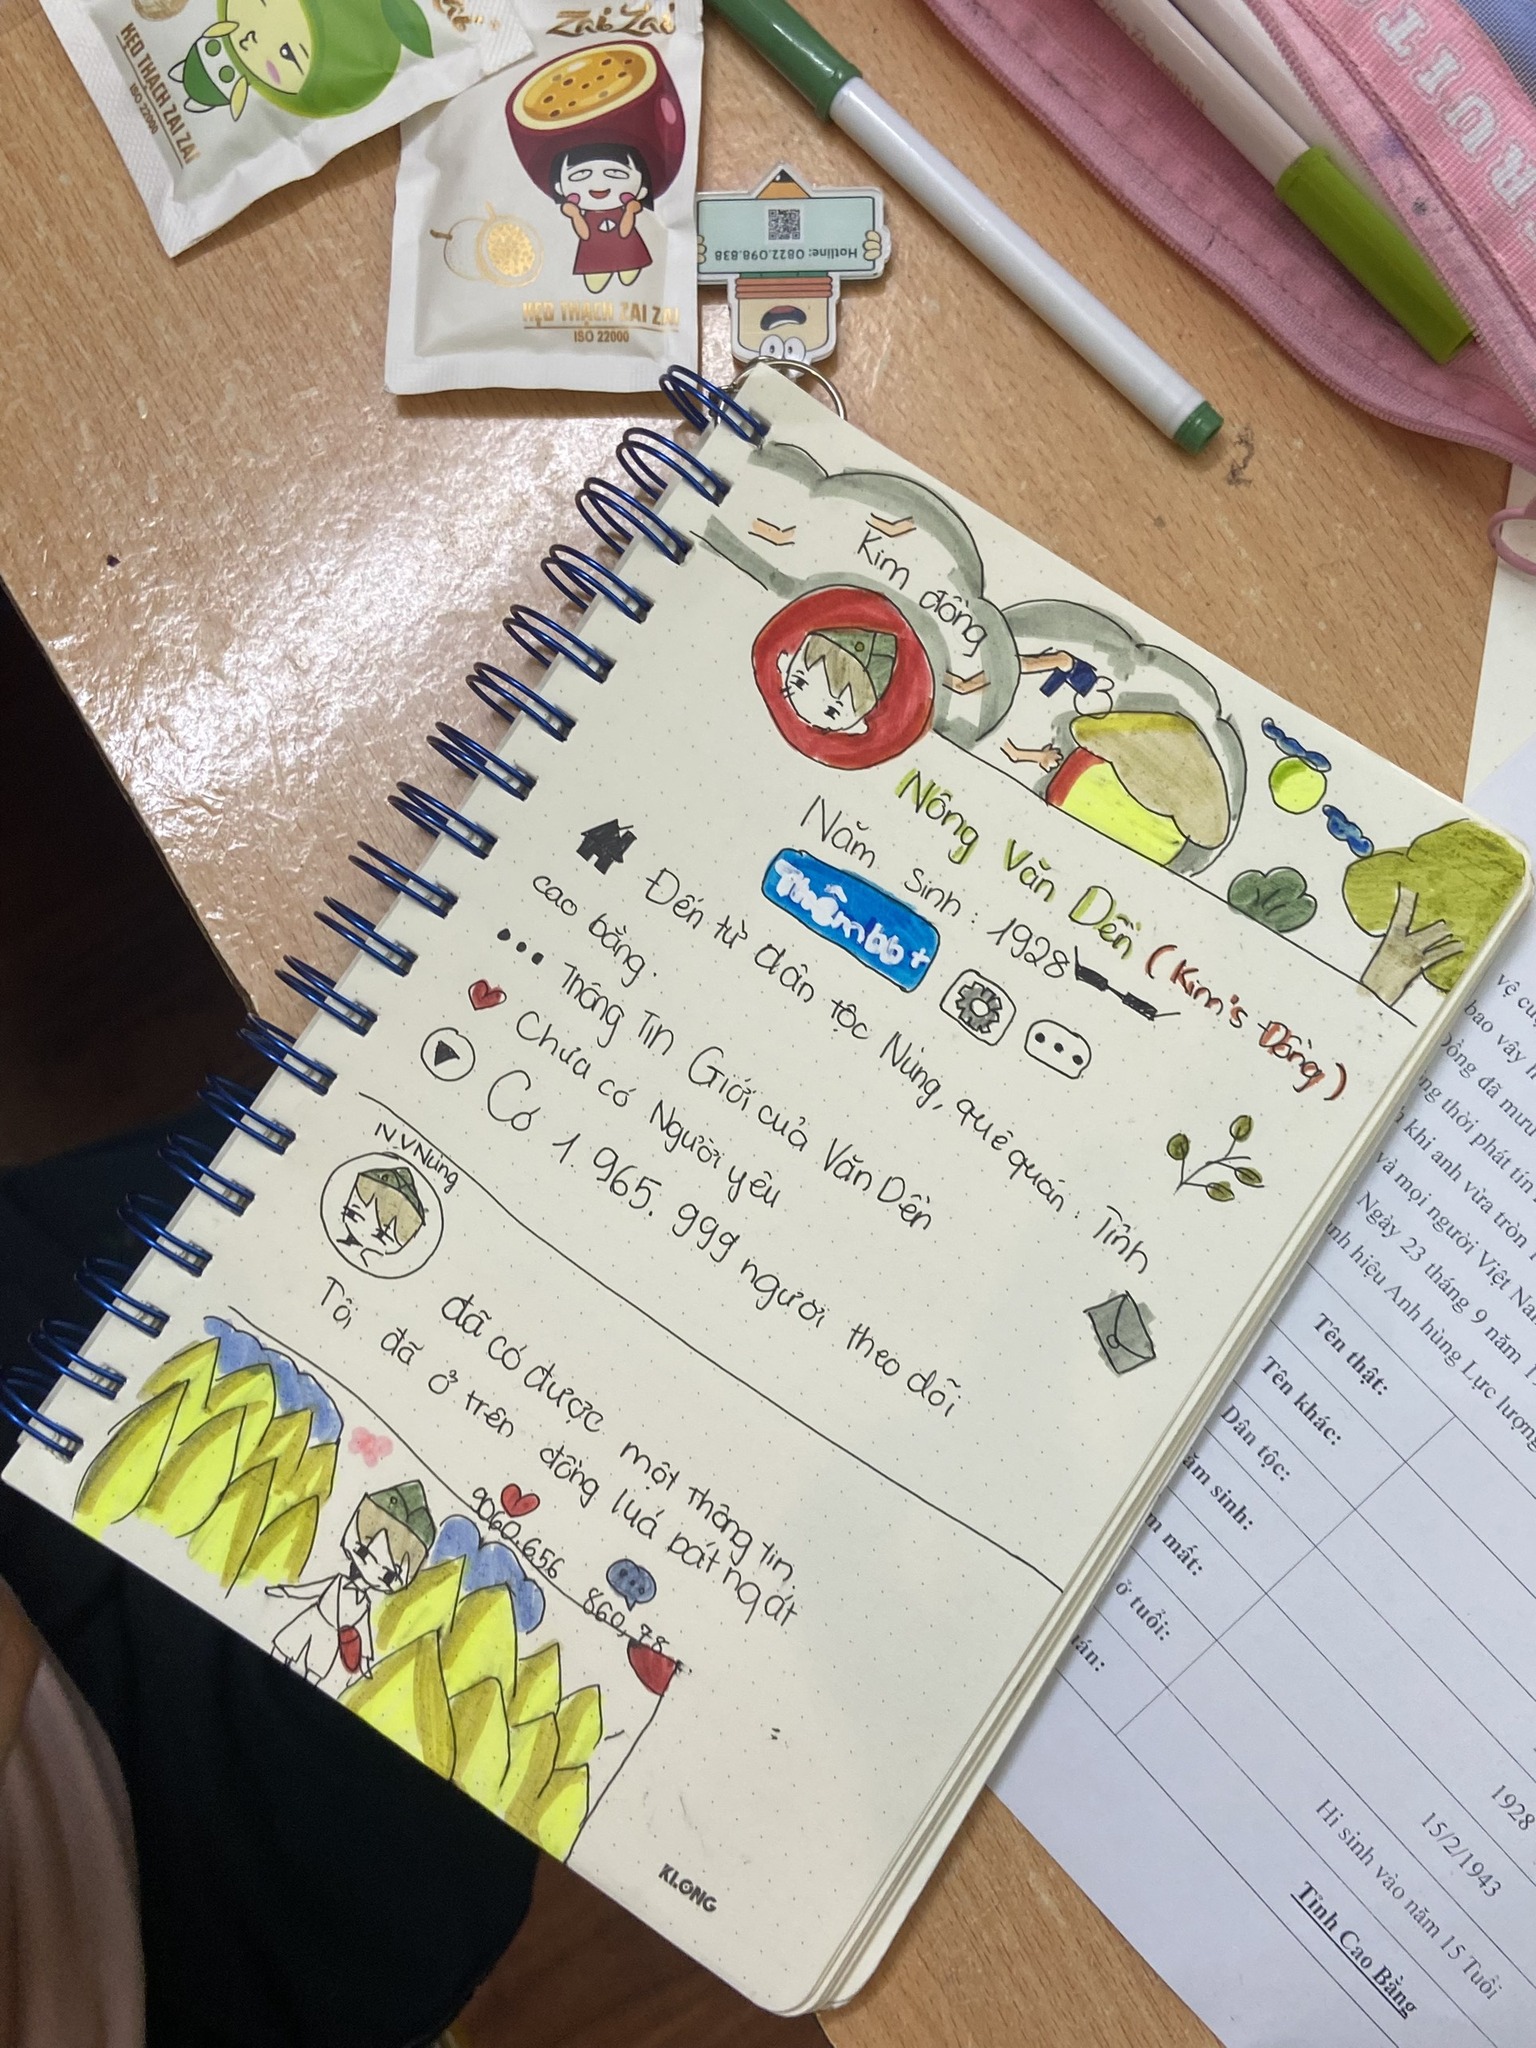 Zai Zai
KẸO THẠCH ZAI ZAI
ISO 22000
KẸO THẠCH ZAI ZAI
ISO 22000
Hotline: 0822.098.838
FRUIT
Kim đồng
Nông Văn Dền (Kim's Đồng)
Năm sinh: 1928
Thêm bb +
Đến từ dân tộc Nùng, quê quán: Tỉnh
cao bằng.
Thông Tin Giới của Văn Dền
Chưa có Người yêu
Có 1.965.999 người theo dõi
N.VNùng
đã có được một thông tin.
Tôi đã ở trên đồng luá bát ngát
9060.656
860,78
KLONG
vệ cu
bao vây
Đồng đã mưu
ng thời phát tín
h khi anh vừa tròn 1
và mọi người Việt Nam
Ngày 23 tháng 9 năm 1
anh hiệu Anh hùng Lực lượng
Tên thật:
Tên khác:
Dân tộc:
ăm sinh:
1928
m mất:
15/2/1943
ở tuổi:
Hi sinh vào năm 15 Tuổi
uán:
Tỉnh Cao Bằng